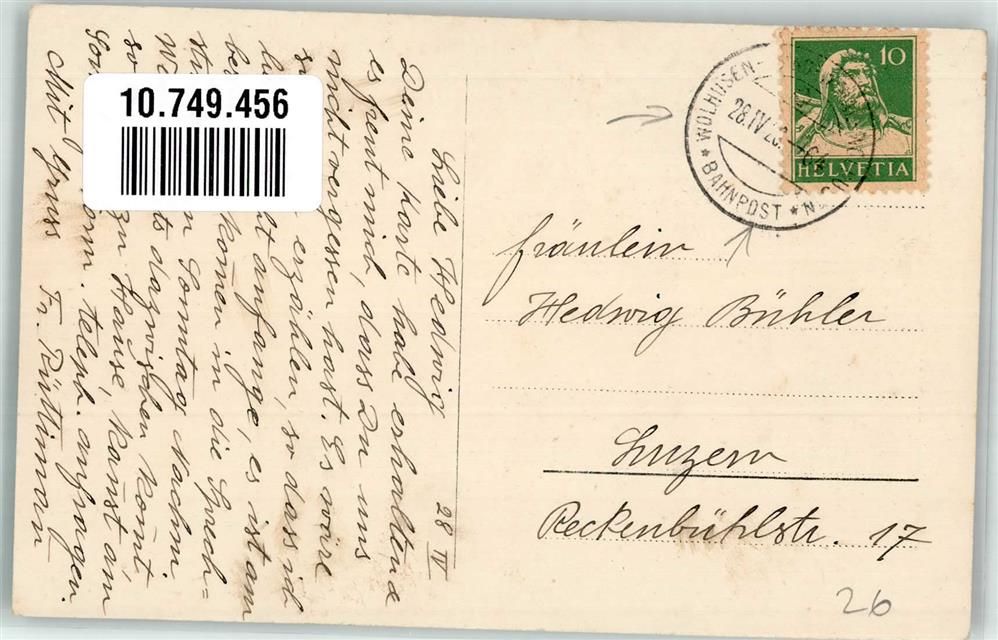 10.749.456
28 IV
Liebe Hedwig
Deine Karte habe erhalten &
es freut mich, dass Du uns
nicht vergessen hast. Es wäre
erzählen, so dass ich
anfange, es ist am
komen in die Sprech=
Sonntag Nachm.
dazwischen komt
zu Hause, kanst am
Vorm. teleph. anfragen.
Mit Gruss Fr. Rüttimann
10
HELVETIA
* WOLHUSEN-
28.IV
* BAHNPOST *
Fräulein
Hedwig Bühler
Luzern
Reckenbühlstr. 17
26